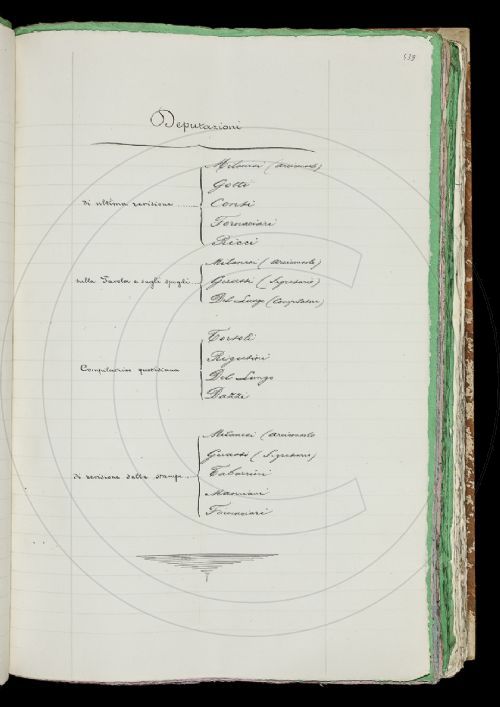 439
Deputazioni
di ultima revisione
Milanesi (Arciconsolo)
Gotti
Conti
Fornaciari
Ricci
sulla Tavola e sugli spogli
Milanesi (Arciconsolo)
Guasti (Segretario)
Del Lungo (Compilatore)
Compilazione quotidiana
Tortoli
Rigutini
Del Lungo
Dazzi
di revisione delle stampe
Milanesi (Arciconsolo
Guasti (Segretario)
Tabarrini
Mannani
Fornaciari